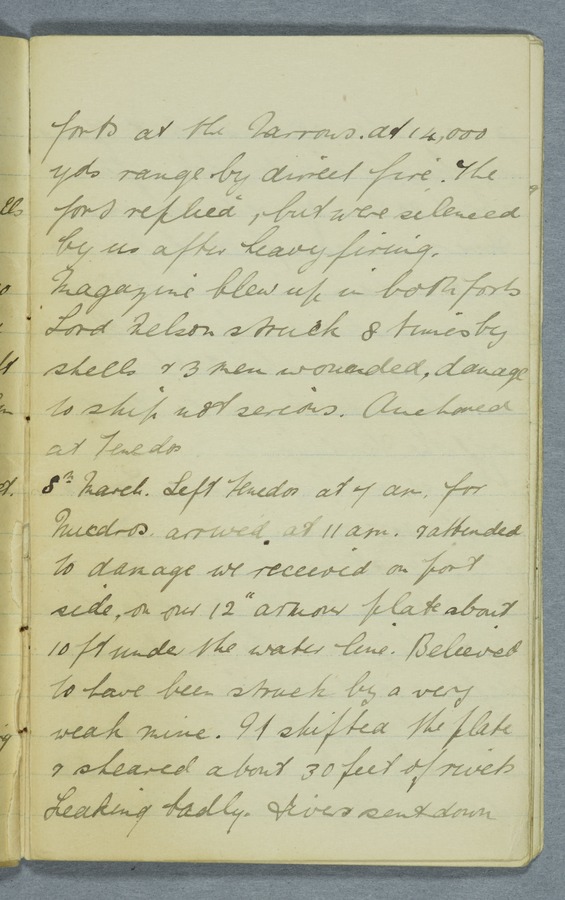 forts at the Narrows. at 14,000
yds range by direct fire. The
fort replied, but were silenced
by us after heavy firing.
Magazine blew up in both forts
Lord Nelson struck 8 times by
shells & 3 men wounded, damage
to ship not serious. Anchored
at Tenedos
8th March. Left Tenedos at 7 am. for
Mudros. arrived at 11 am. & attended
to damage we received on port
side, on our 12" armour plate about
10 ft under the water line. Believed
to have been struck by a very
weak mine. It shifted the plate
& sheared about 30 feet of rivets
Leaking badly. Divers sent down